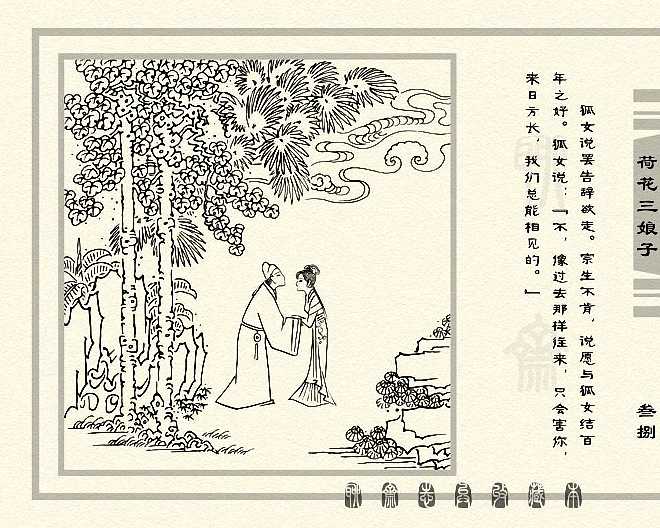 荷花三娘子
叁捌
狐女说罢告辞欲走。宗生不肯，说愿与狐女结百
年之好。狐女说：「不，像过去那样往来，只会害你，
来日方长，我们总能相见的。」